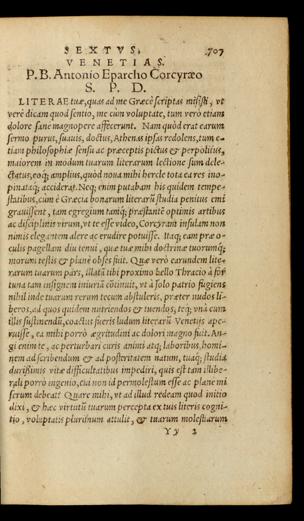 SEXTVS. 707
VENETIAS.
P. B. Antonio Eparcho Corcyræo
S. P. D.
LITERAE tuæ, quas ad me Græcè scriptas misisti, vt
verè dicam quod sentio, me cùm voluptate, tum verò etiam
dolore sane magnopere affecerunt. Nam quòd erat earum
sermo purus, suauis, doctus, Athenas ipsas redolens, tum e-
tiam philosophiæ sensu ac præceptis pictus & perpolitus,
maiorem in modum tuarum literarum lectione sum dele-
ctatus, eoq; amplius, quòd noua mihi hercle tota ea res ino-
pinataq; acciderat. Neq; enim putabam his quidem tempe-
statibus, cùm è Græcia bonarum literarũ studia penitus emi
grauissent, tam egregium tamq; præstantẽ optimis artibus
ac disciplinis virum, vt te esse video, Corcyram insulam non
nimis elegantem alere ac erudire potuisse. Itaq; eam præ o-
culis pagellam diu tenui, quæ tuæ mihi doctrinæ tuorumq;
morum testis & planè obses fuit. Quæ verò earundem lite-
rarum tuarum pars, illatã tibi proximo bello Thracio à for
tuna tam insignem iniuriã cõtinuit, vt à solo patrio fugiens
nihil inde tuarum rerum tecum abstuleris, præter nudos li-
beros, ad quos quidem nutriendos & tuendos, teq; vnà cum
illis sustinendũ, coactus fueris ludum literarũ Venetijs ape-
ruisse, ea mihi porrò ægritudini ac dolori magno fuit. An-
gi enim te, ac perturbari curis animi atq; laboribus, homi-
nem ad scribendum & ad posteritatem natum, tuaq; studia
durissimis vitæ difficultatibus impediri, quis est tam illibe-
rali porrò ingenio, cui non id permolestum esse ac planè mi
serum debeat? Quare mihi, vt ad illud redeam quod initio
dixi, & hæc virtutũ tuarum percepta ex tuis literis cogni-
tio, voluptatis plurimum attulit, & tuarum molestiarum
Yy 2